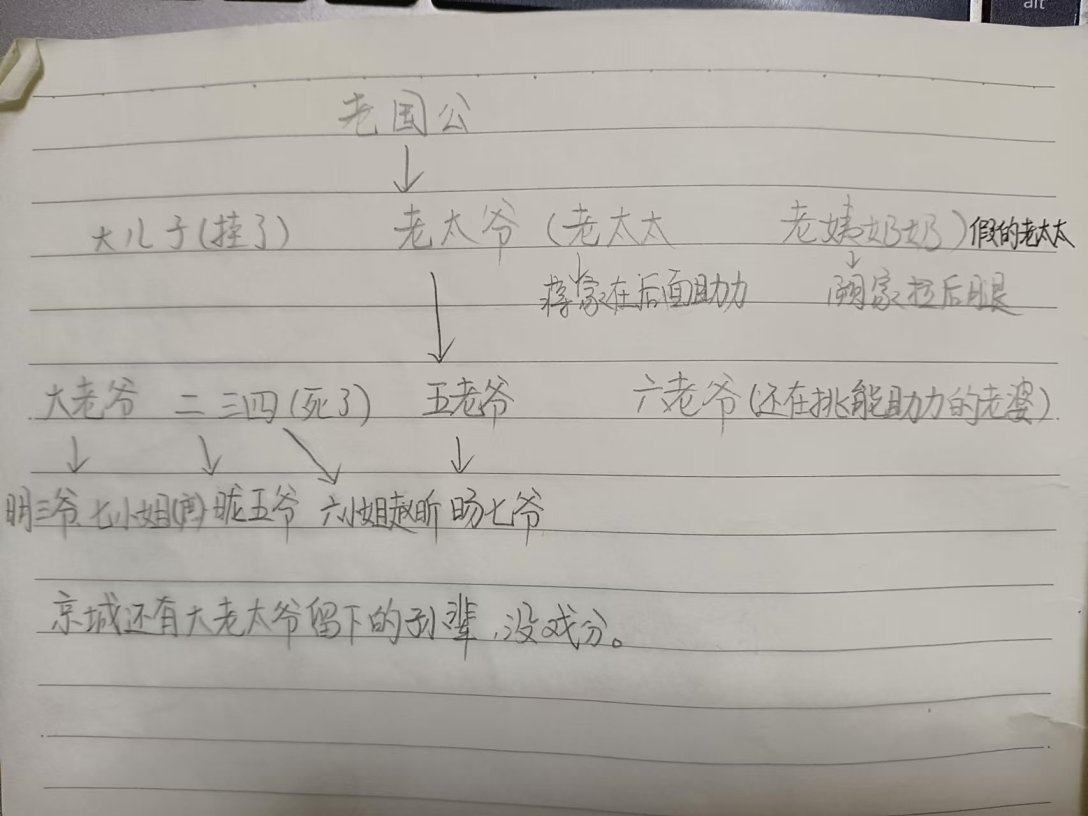 alt
老国公
大儿子(挂了) 老太爷(老太太 老姨奶奶)假的老太太
蒋家在后面助力 顾家拉后腿
大老爷 二三四(死了) 五老爷 六老爷(还在挑能助力的老婆).
明三爷 七小姐 昽五爷 六小姐赵昕 旸七爷
京城还有大老太爷留下的孙辈,没戏分。